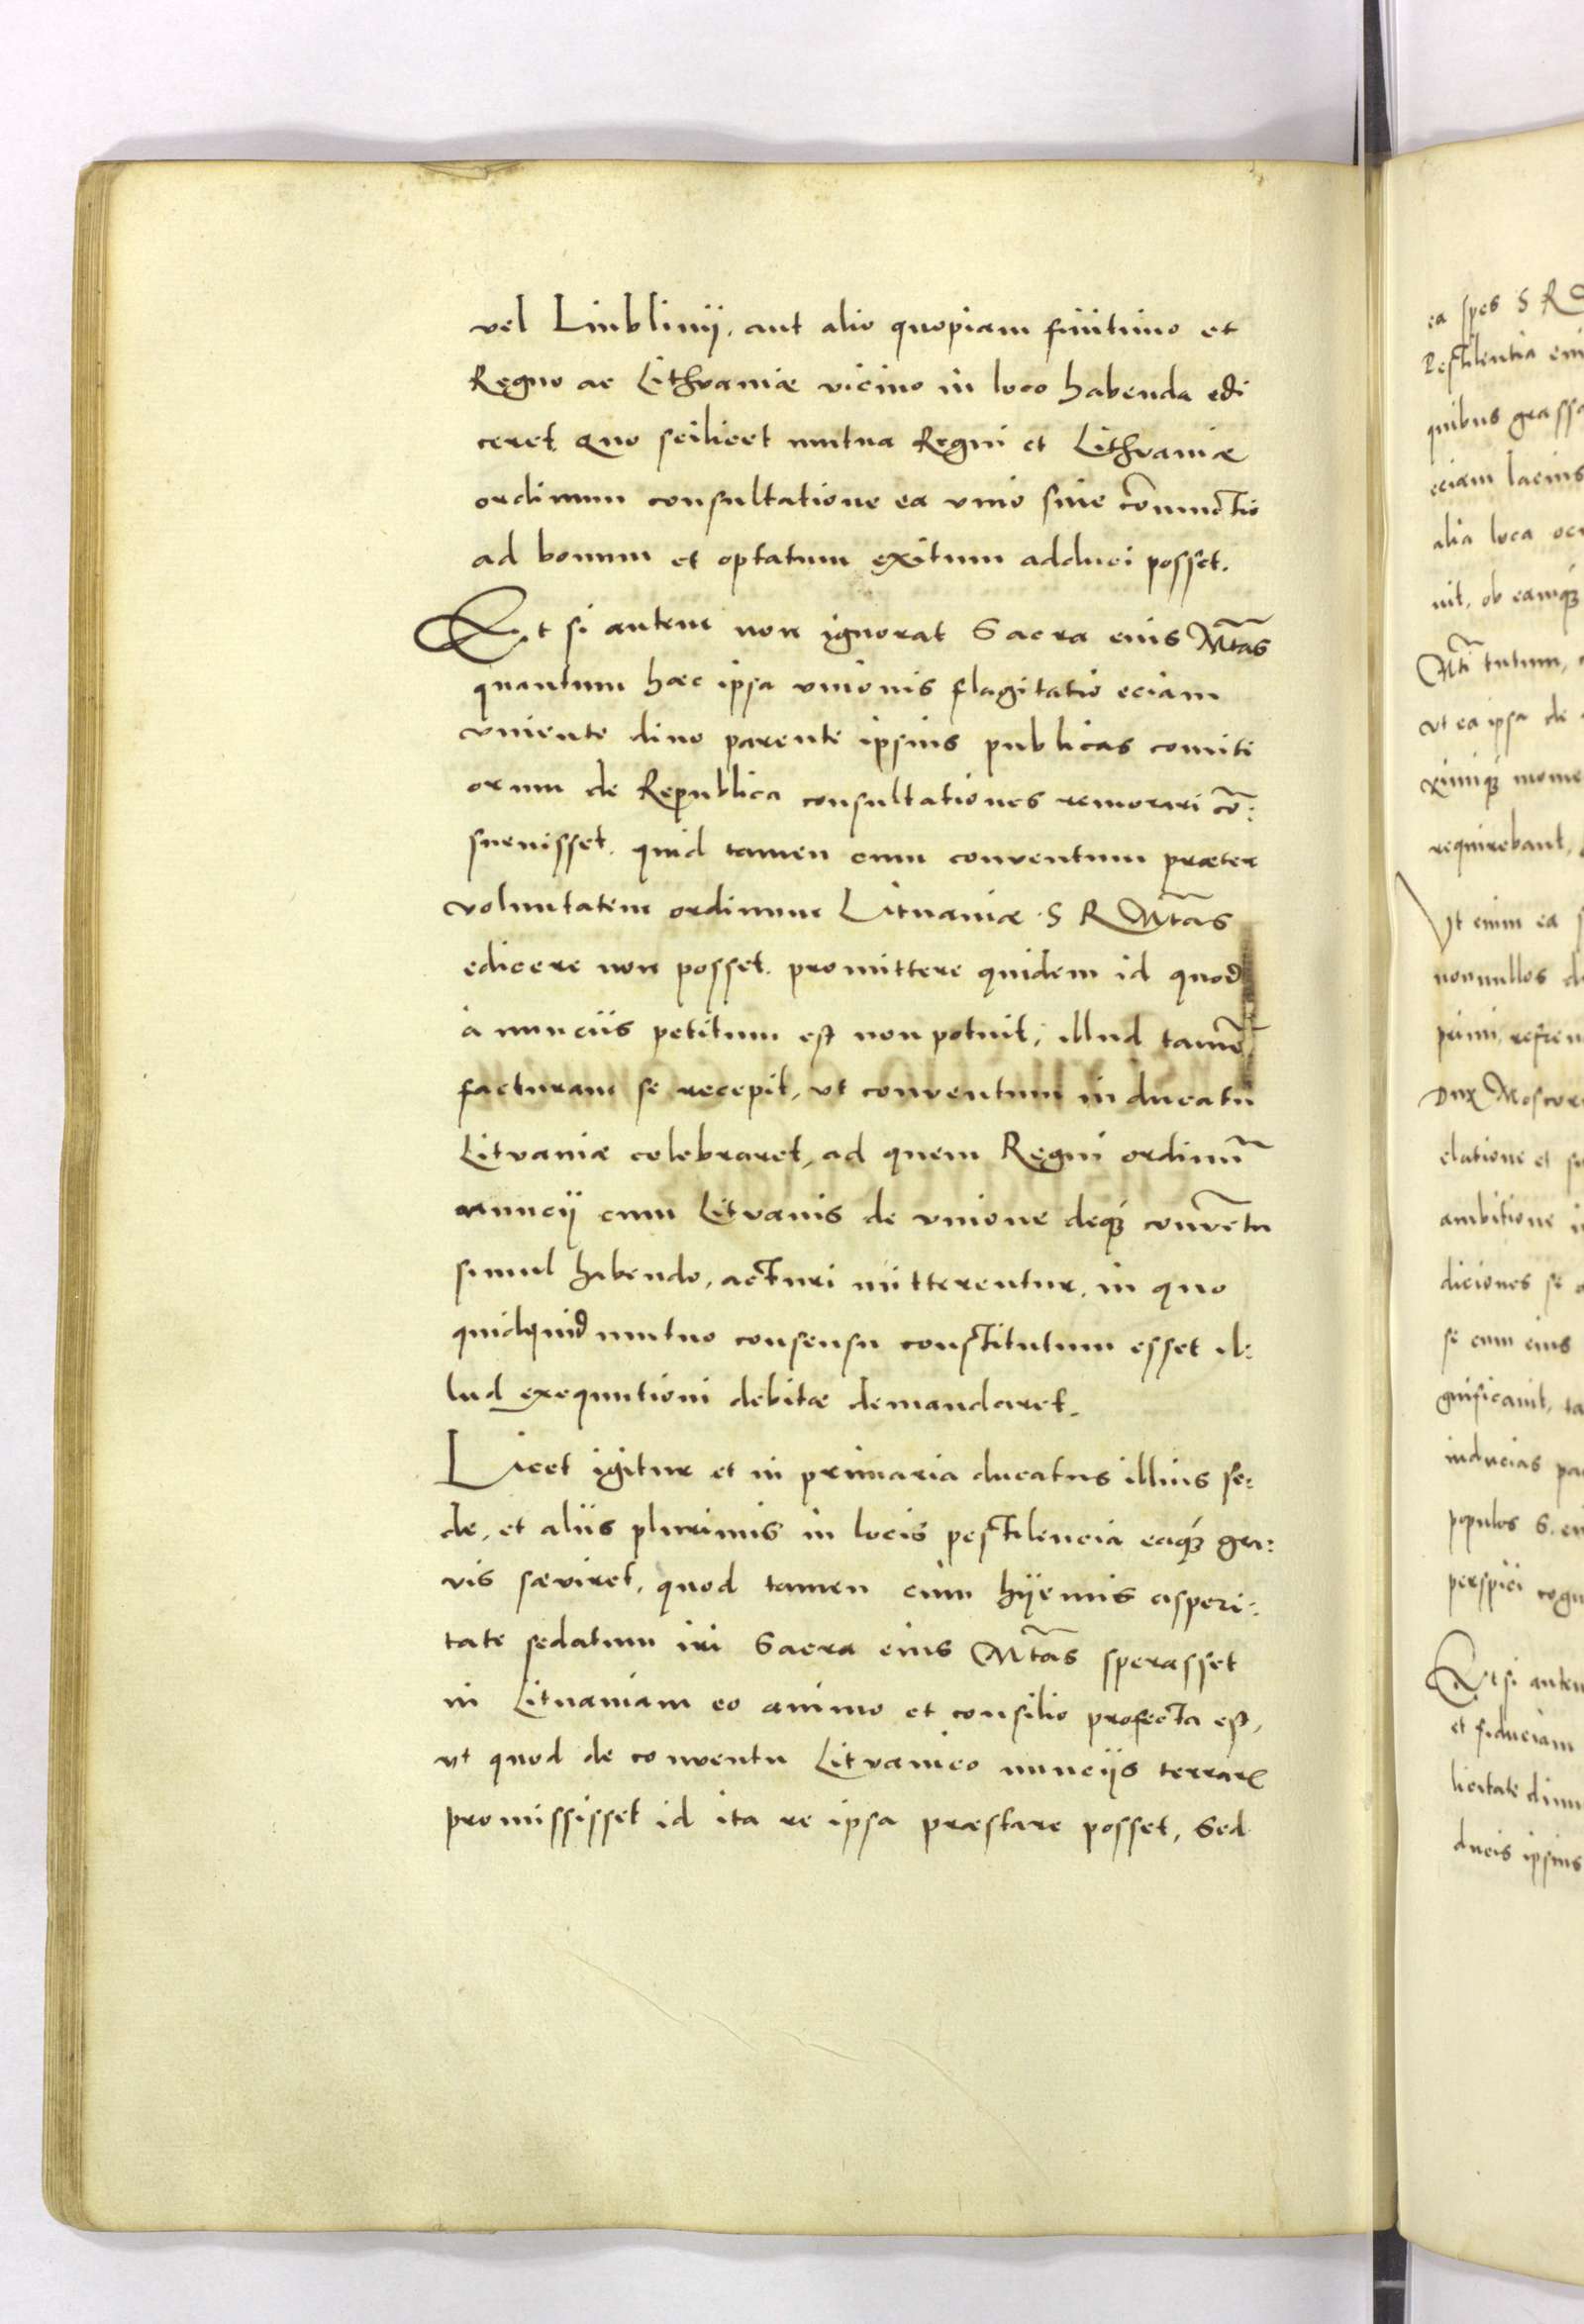 vel Liublinij, aut alio quopiam finitimo et
Regno ac Lithvaniæ vicino in loco habenda edi
ceret quo scilicet mutua Regni et Lithvaniæ
ordinum consultatione ea vnio siue cõiunctio
ad bonum et optatum exitum adduci posset.
Et si autem non ignorat Sacra eius Mtãs
quantum hæc ipsa vnionis flagitatio eciam
viuente diuo parente ipsius publicas comiti
orum de Republica consultationes remorari cõ:
sueuisset. quid tamen cum conventum præter
voluntatem ordinum Lituaniæ S R Mtãs
edicere non posset. promittere quidem id quod
à nunciis petitum est non potuit, illud tamẽ
facturam se recepit, vt conventum in ducatu
Litvaniæ celebraret, ad quem Regni ordinũ
nuncij cum Litvanis de vnione deq́ convẽtu
simul habendo, acturi mitterentur. in quo
quidquid mutuo consensu constitutum esset il:
lud exequutioni debitæ demandaret.
Licet igitur et in primaria ducatus illius se:
de, et aliis plurimis in locis pestilencia eaq́ gra:
vis sæviret, quod tamen cum hÿemis asperi:
tate sedatum iri Sacra eius Mtãs sperasset
in Lituaniam eo animo et consilio profecta est,
vt quod de conventu Litvanico nuncijs terrarꝫ
promississet id ita re ipsa præstare posset, Sed
ea spes S R
Pestilentia
quibus
eciam
alia loca
uit, ob eamq́
Mti tutum,
vt ea ipsa de
ximiq́
requirebant,
Vt enim ea
nonnullos
primi,
Dux
elatione et
ambitione
diciones se
se cum eius
gnificavit,
inducias
populos S.
perspici
Et si
et fiduciam
ducis ipsius